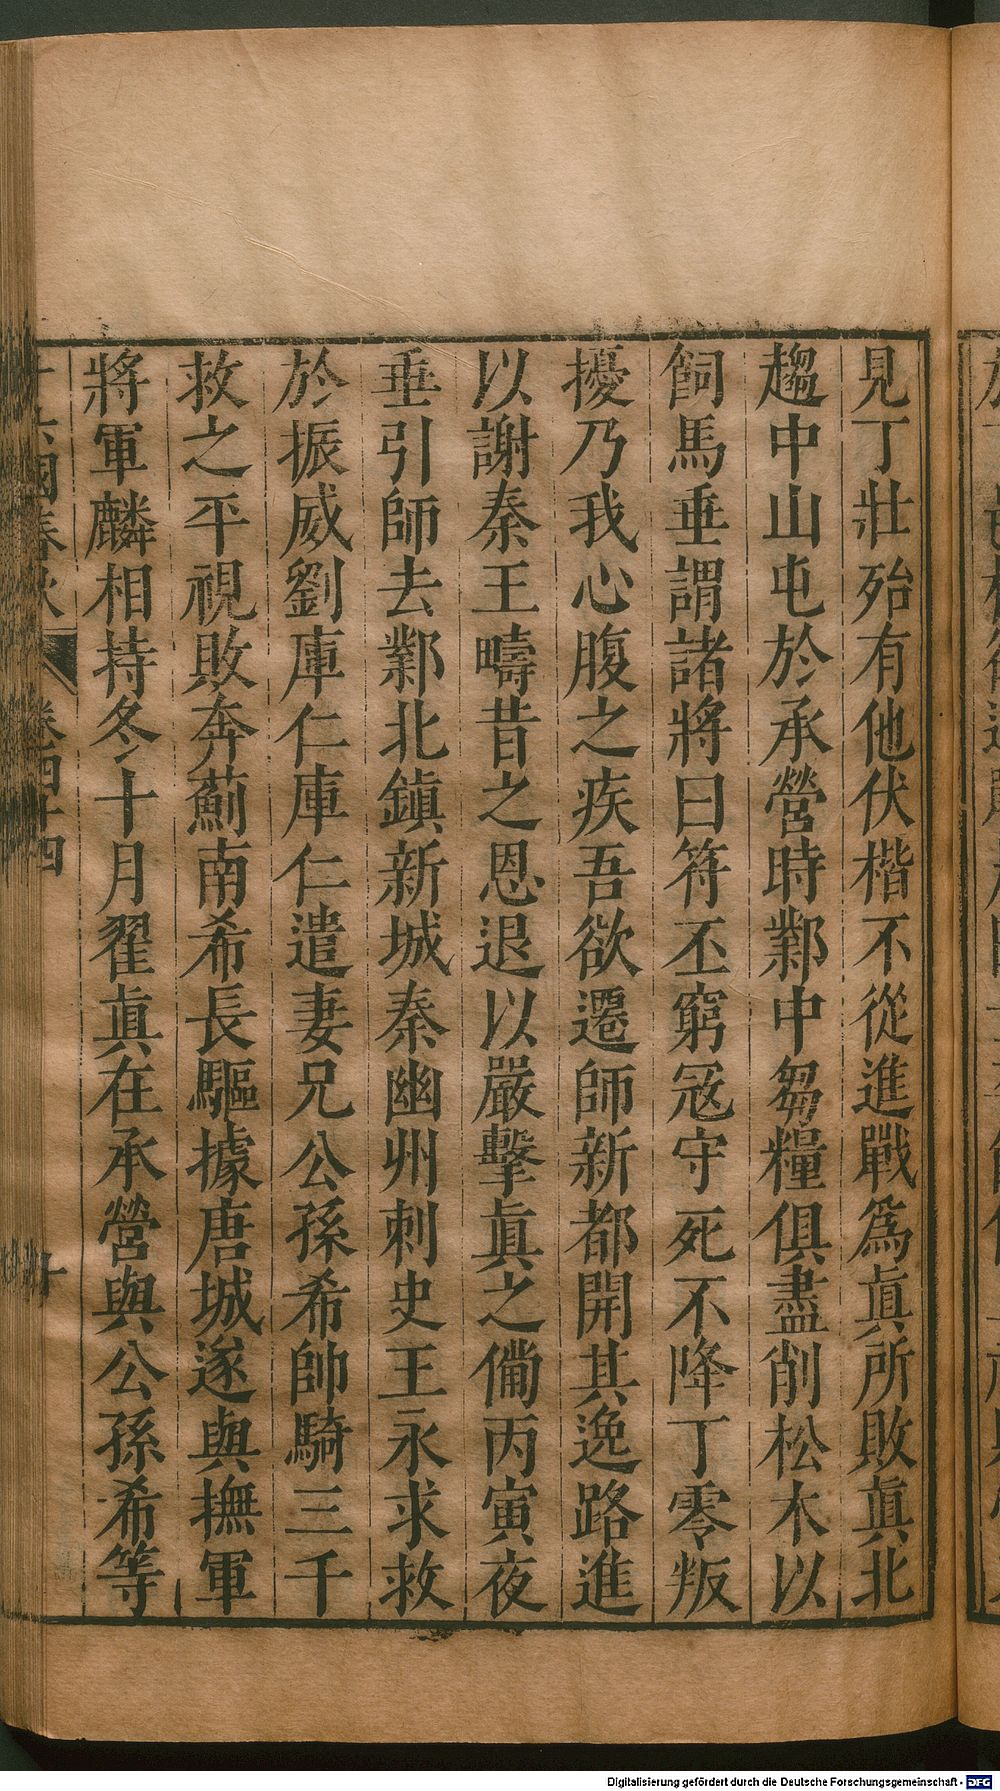 見丁壯殆有他伏楷不從進戰爲眞所敗眞北
趨中山屯於承營時鄴中芻糧俱盡削松木以
飼馬垂謂諸將曰符丕窮冦守死不降丁零叛
擾乃我心腹之疾吾欲遷師新都開其逸路進
以謝秦王疇昔之恩退以嚴擊眞之備丙寅夜
垂引師去鄴北鎮新城秦幽州刺史王永求救
於振威劉庫仁庫仁遣妻兄公孫希帥騎三千
救之平視敗奔薊南希長驅據唐城遂與撫軍
將軍麟相持冬十月翟眞在承營與公孫希等
十六國春秋 卷四十四 十
Digitalisierung gefördert durch die Deutsche Forschungsgemeinschaft - DFG